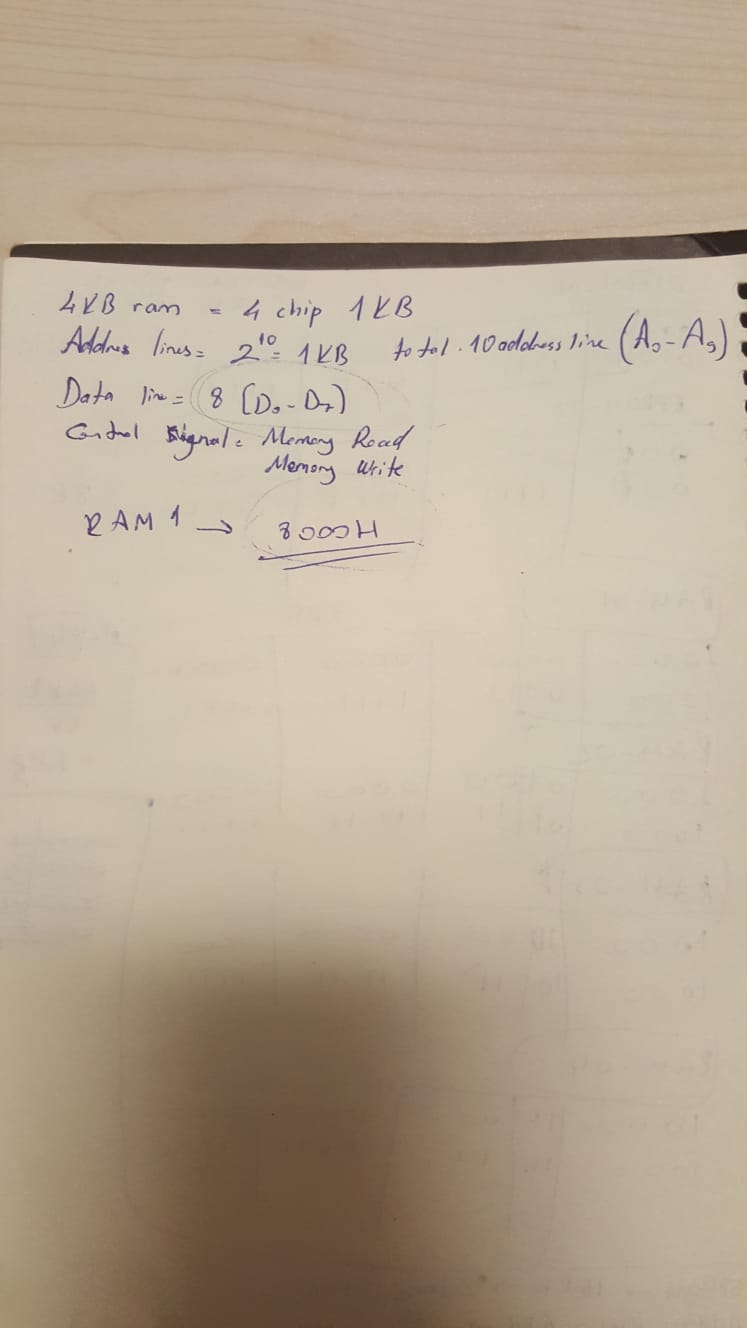 4KB ram = 4 chip 1KB
Addres lines = 2¹⁰ = 1KB total. 10 address line (A₀ - A₉)
Data line = 8 [D₀ - D₇)
Control Signal = Memory Read
Memory Write
RAM 1 → 8000H